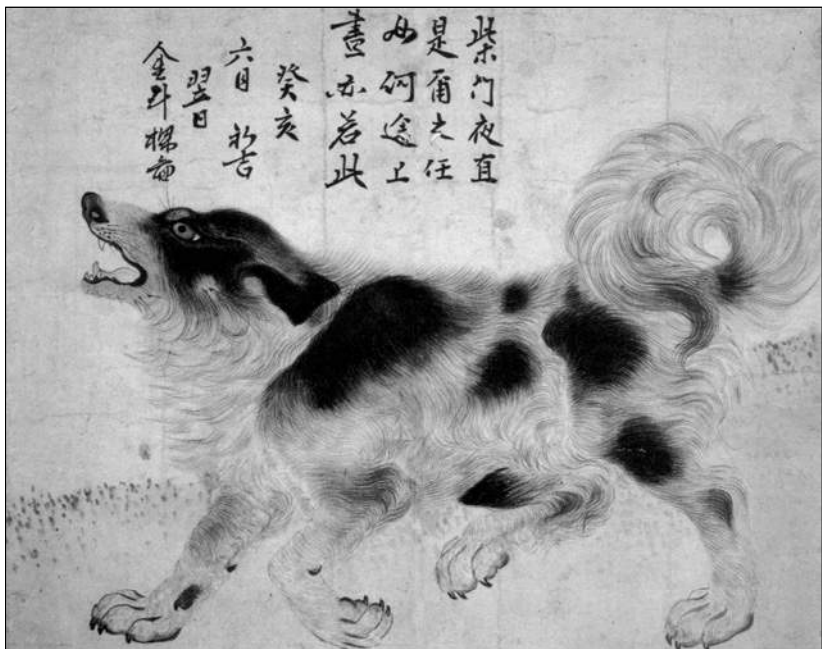 柴門夜直
是爾之任
如何途上
晝亦若此
癸亥
六月 初吉
翌日
金斗樑圖